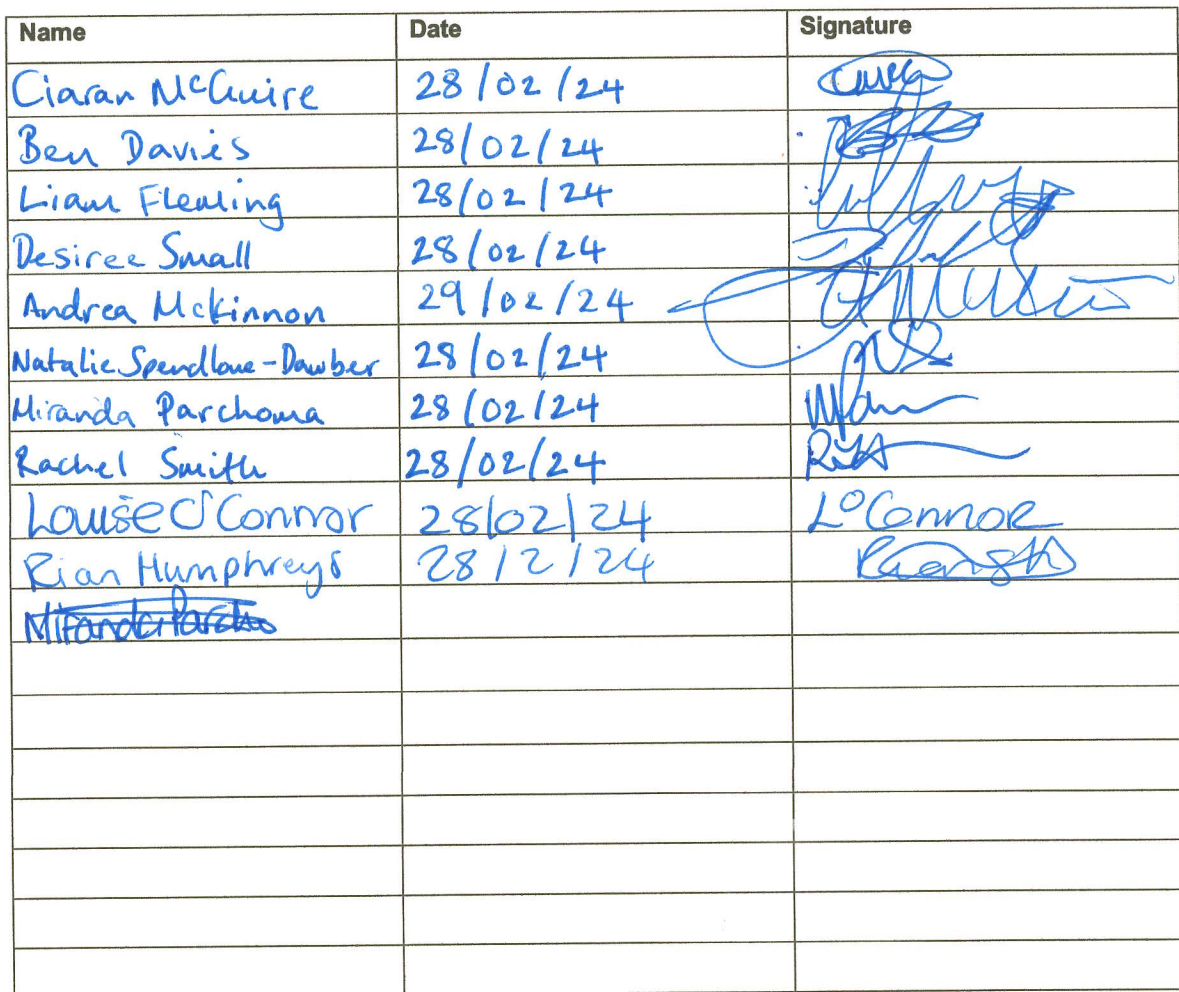 Name Date Signature
Ciaran McGuire 28/02/24
Ben Davies 28/02/24
Liam Fleming 28/02/24
Desiree Small 28/02/24
Andrea McKinnon 29/02/24
Natalie Spendlove-Dawber 28/02/24
Miranda Parchoma 28/02/24
Rachel Smith 28/02/24
Louise O'Connor 28/02/24 L O'Connor
Rian Humphreys 28/2/24
Miranda Parcho